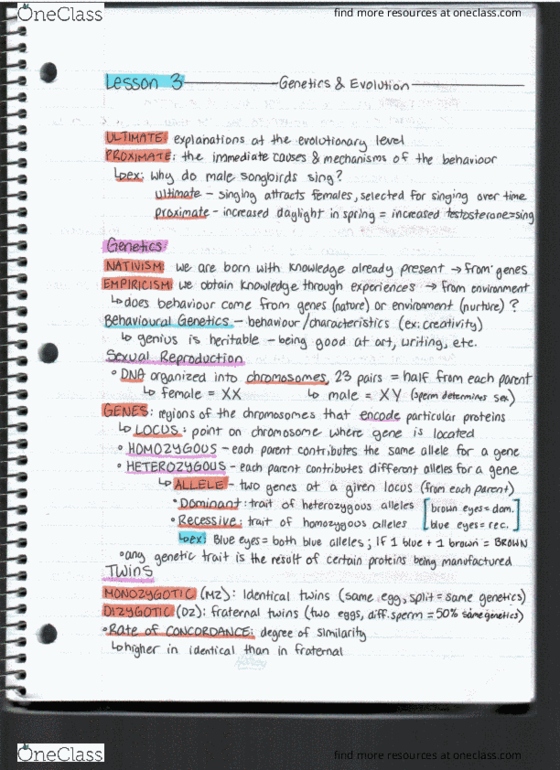 OneClass
find more resources at oneclass.com
Lesson 3 Genetics & Evolution
ULTIMATE: explanations at the evolutionary level
PROXIMATE: the immediate causes & mechanisms of the behaviour
↳ex: why do male songbirds sing?
ultimate – singing attracts females, selected for singing over time
proximate – increased daylight in spring = increased testosterone=sing
Genetics
NATIVISM: we are born with knowledge already present → from genes
EMPIRICISM: we obtain knowledge through experiences → from environment
↳does behaviour come from genes (nature) or environment (nurture)?
Behavioural Genetics – behaviour/characteristics (ex: creativity)
↳ genius is heritable – being good at art, writing, etc.
Sexual Reproduction
• DNA organized into chromosomes, 23 pairs = half from each parent
↳ female = XX ↳ male = XY (sperm determines sex)
GENES: regions of the chromosomes that encode particular proteins
↳ LOCUS: point on chromosome where gene is located
• HOMOZYGOUS – each parent contributes the same allele for a gene
• HETEROZYGOUS – each parent contributes different alleles for a gene
↳ ALLELE – two genes at a given locus (from each parent)
• Dominant: trait of heterozygous alleles [brown eyes = dom.
• Recessive: trait of homozygous alleles blue eyes = rec.]
↳ex: Blue eyes = both blue alleles; if 1 blue + 1 brown = BROWN
•any genetic trait is the result of certain proteins being manufactured
Twins
MONOZYGOTIC (MZ): identical twins (same egg, split = same genetics)
DIZYGOTIC (DZ): fraternal twins (two eggs, diff. sperm = 50% same genetics)
•Rate of CONCORDANCE: degree of similarity
↳higher in identical than in fraternal
OneClass
find more resources at oneclass.com